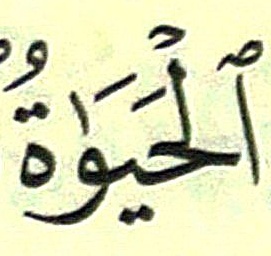 ٱلْحَيَوٰةُ